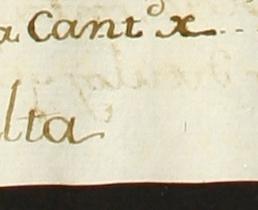 a Cant.º x
lta